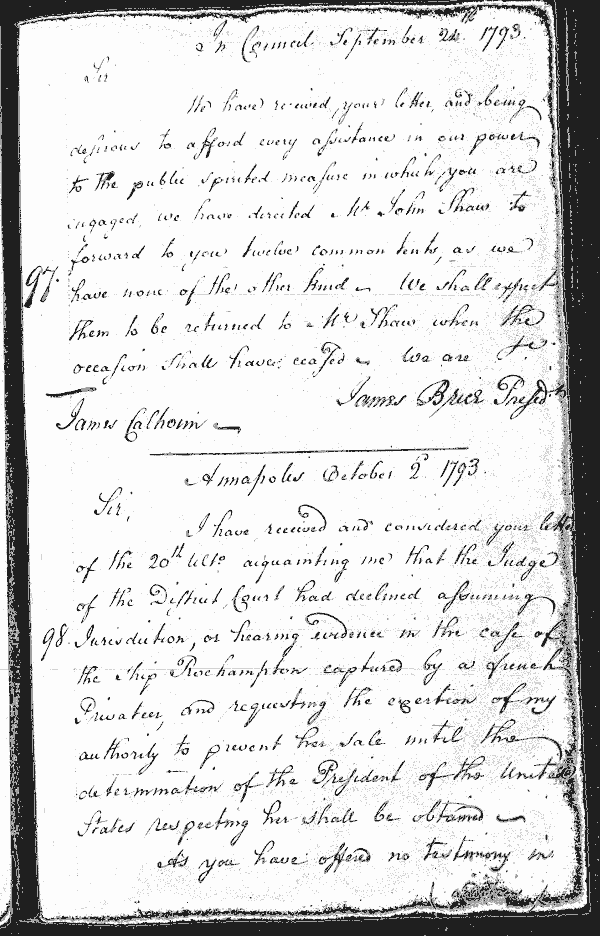 In Council September 24th 1793.
Sir
We have received your letter, and being
desirous to afford every assistance in our power
to the public spirited measure in which you are
engaged, we have directed Mr John Shaw to
forward to you twelve common tents, as we
97. have none of the other kind. We shall expect
them to be returned to Mr Shaw when the
occasion shall have ceased. We are &c.
James Brice Presid.t
James Calhoun
Annapolis October 2d 1793.
Sir,
I have received and considered your letter
of the 20th Ulto acquainting me that the Judge
of the District Court had declined assuming
98. Jurisdiction, or hearing evidence in the case of
the Ship Roehampton captured by a french
Privateer, and requesting the exertion of my
authority to prevent her sale until the
determination of the President of the United
States respecting her shall be obtained
As you have offered no testimony in